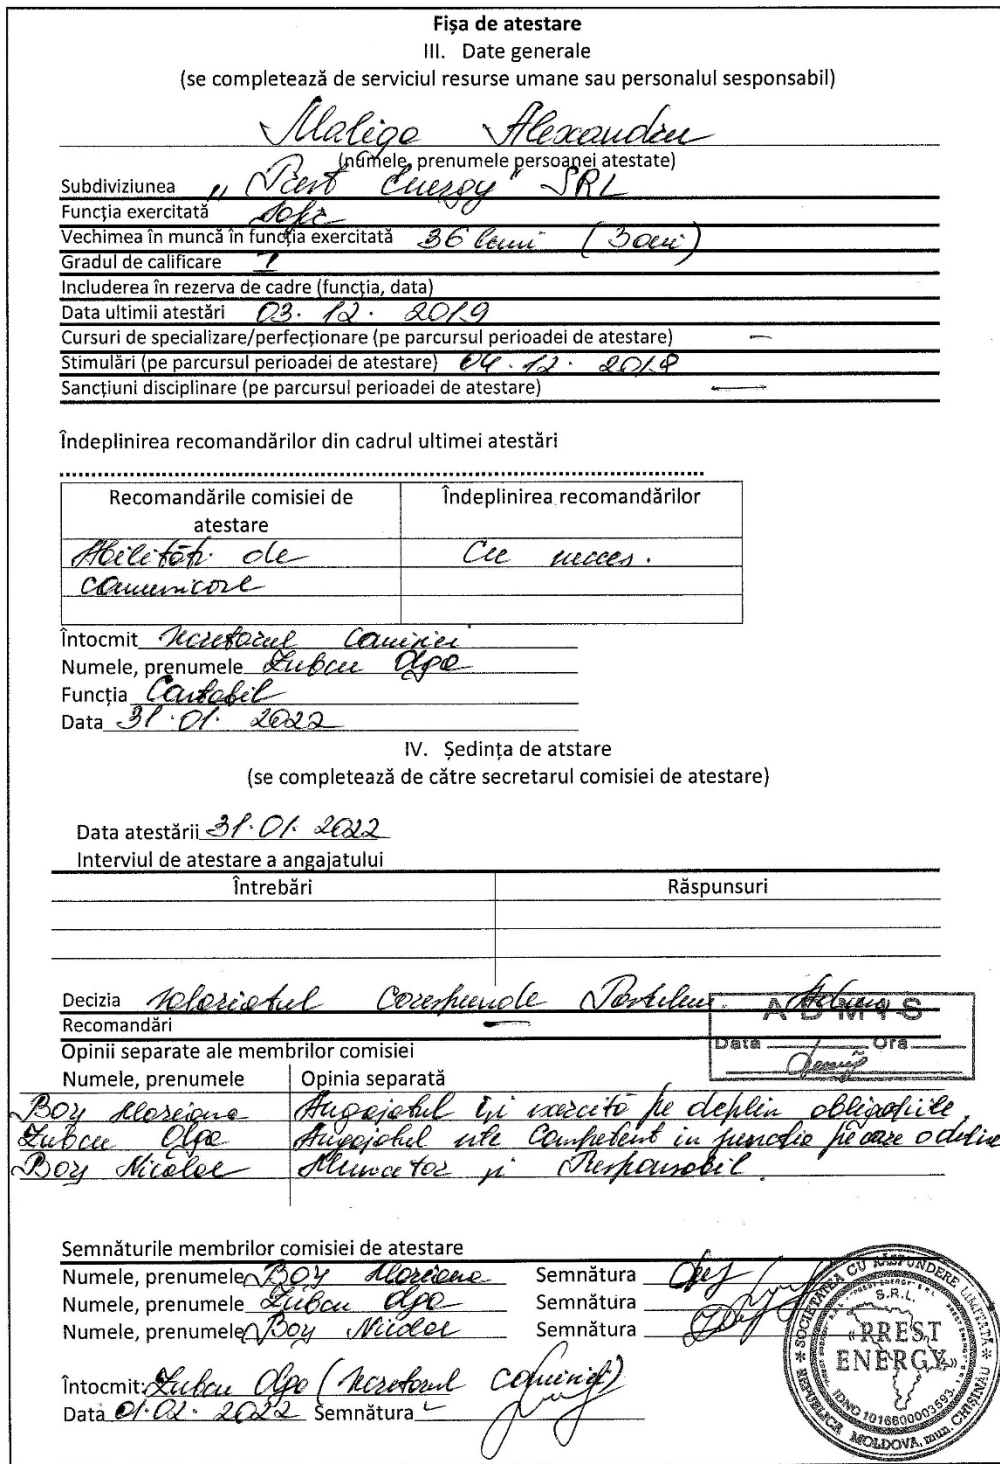 Fișa de atestare
III. Date generale
(se completează de serviciul resurse umane sau personalul sesponsabil)
Maliga Alexandru
(numele, prenumele persoanei atestate)
Subdiviziunea „Prest Energy" SRL
Funcția exercitată
Vechimea în muncă în funcția exercitată 36 luni (3 ani)
Gradul de calificare I
Includerea în rezerva de cadre (funcția, data)
Data ultimii atestări 03.12.2019
Cursuri de specializare/perfecționare (pe parcursul perioadei de atestare) —
Stimulări (pe parcursul perioadei de atestare) 04.12.2018
Sancțiuni disciplinare (pe parcursul perioadei de atestare) —
Îndeplinirea recomandărilor din cadrul ultimei atestări
Recomandările comisiei de atestare Îndeplinirea recomandărilor
Abilități de Cu succes.
comunicare
Întocmit secretarul comisiei
Numele, prenumele Zubcu Olga
Funcția Contabil
Data 31.01.2022
IV. Ședința de atstare
(se completează de către secretarul comisiei de atestare)
Data atestării 31.01.2022
Interviul de atestare a angajatului
Întrebări Răspunsuri
Decizia salariatul corespunde Postului. Admis
Recomandări —
ADMIS
Data Ora
Opinii separate ale membrilor comisiei
Numele, prenumele Opinia separată
Boy Mariana Angajatul își exercită pe deplin obligațiile.
Zubcu Olga Angajatul este Competent in funcția pe care o deține
Boy Nicolae Muncitor și Responsabil
Semnăturile membrilor comisiei de atestare
Numele, prenumele Boy Mariana Semnătura
Numele, prenumele Zubcu Olga Semnătura
Numele, prenumele Boy Nicolae Semnătura
Întocmit: Zubcu Olga (secretarul comisiei)
Data 01.02.2022 Semnătura
SOCIETATEA CU RĂSPUNDERE LIMITATĂ
S.R.L.
«PREST ENERGY»
IDNO 1016600003593
REPUBLICA MOLDOVA, mun. CHIȘINĂU